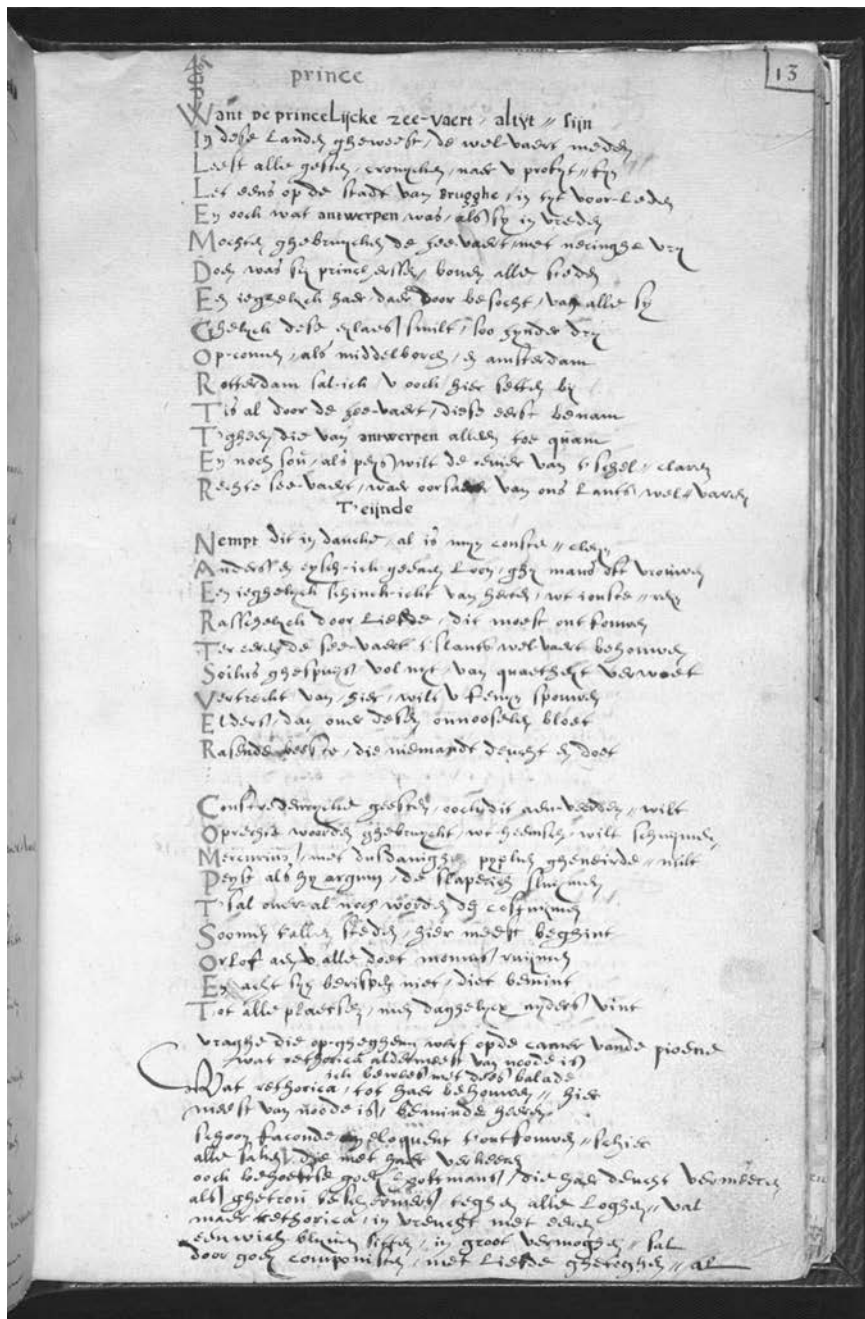 13
prince
Want de princelijcke zee-vaert, altyt // sijn
In dese Landen gheweest, de wel-vaert meden
Leest alle gesten, cronycken, naer v profyt // fyn
Let eens op de stadt van Brugghe, in tyt voor-Leden
En ooch wat antwerpen, was, als sy in vreden
Mochten ghebruycken de zee-vaert, met neringhe vry
Doen was sy princ boven alle steden
En ieghelych haer, daer door besocht, van alle sy
Ghelych dese smilt, soo synder dry
Op-comen, als middelborch, en amsterdam
Rotterdam sal-ich, v ooch, hier setten by
Tis al door de zee-vaert, diese eerst benam
Tgheen, die van antwerpen alleen toe quam
En noch sou, als peys, wilt de revier van t'schel // claren
Rechte zee-vaert, waer oorsaecke van ons Lants, wel // varen
T'eijnde
Nempt dit in dancke, al is myn conste // cleyn
Anders en eysch-ich geenen Loon, ghy mans oft vrouwen
Een ieghelych schinck-icht van herten, wt ionste // reyn
Rasschelych door Liefde, dit moest ontfouwen
Ter eeren de zee-vaert t'slants wel-vaert behouwen
Soilus ghespuys, vol nyt, van quaetheyt verwoet
Vertrecht van, hier, wilt v fenyn spouwen
Elders, dan over desen onnooselen bloet
Rasende beeste, die niemandt deucht en doet
Const geesten, ooch dit aen-veerden, wilt
Oprechte woorden ghebruycht, wt-heemsch, wilt schuymen
Mercurius, met dusdanighe ghe // milt
Peyst als hy argum, de slaperich sluymen
T'sal over-al noch worden de costuymen
Soomen t'allen steden, hier meest beghint
Orlof aen v alle doet momus ruymen
En acht syn berispen niet, diet bemint
Tot alle plaetsen, men daghelycx anders vint
vraghe die op-ghegheven wert op de camer vande pioene
wat rethorica aldermeest van noode is
ich bewees met dees balade
Wat rethorica, tot haer behouwen // hier
meest van noode is, beminde heeren
schoon faconde, en eloquent t'ontfouwen // schier
alle saken, die met haer verkeeren
ooch behoeftse goey, die haer deucht vermeeren
als ghetrou beschermers, teghen alle Loghen // val
maer rethorica, in vreucht met eeren
eeuwich blyven sitten, in groot vermoghen // sal
door goey componisten, met Liefde ghetoghen // al